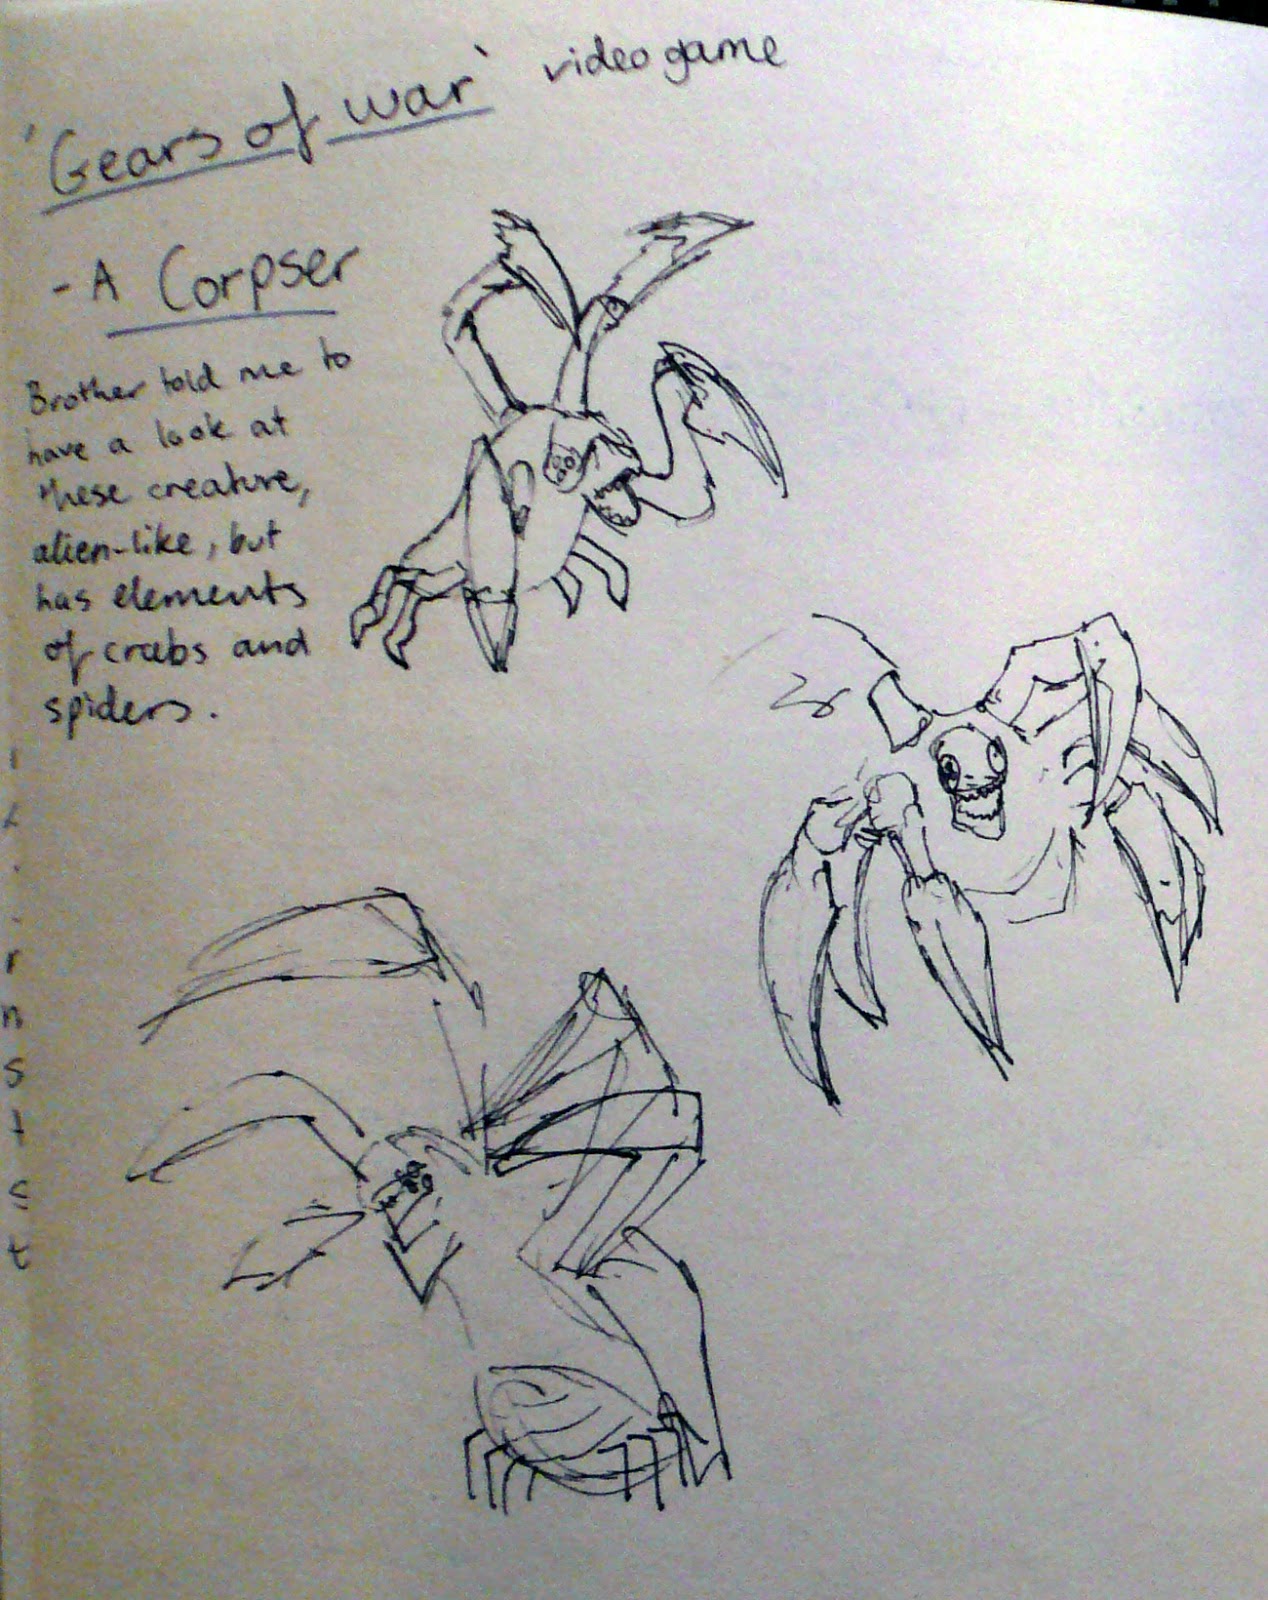 'Gears of War' video game
- A Corpser
Brother told me to
have a look at
these creature,
alien-like, but
has elements
of crabs and
spiders.